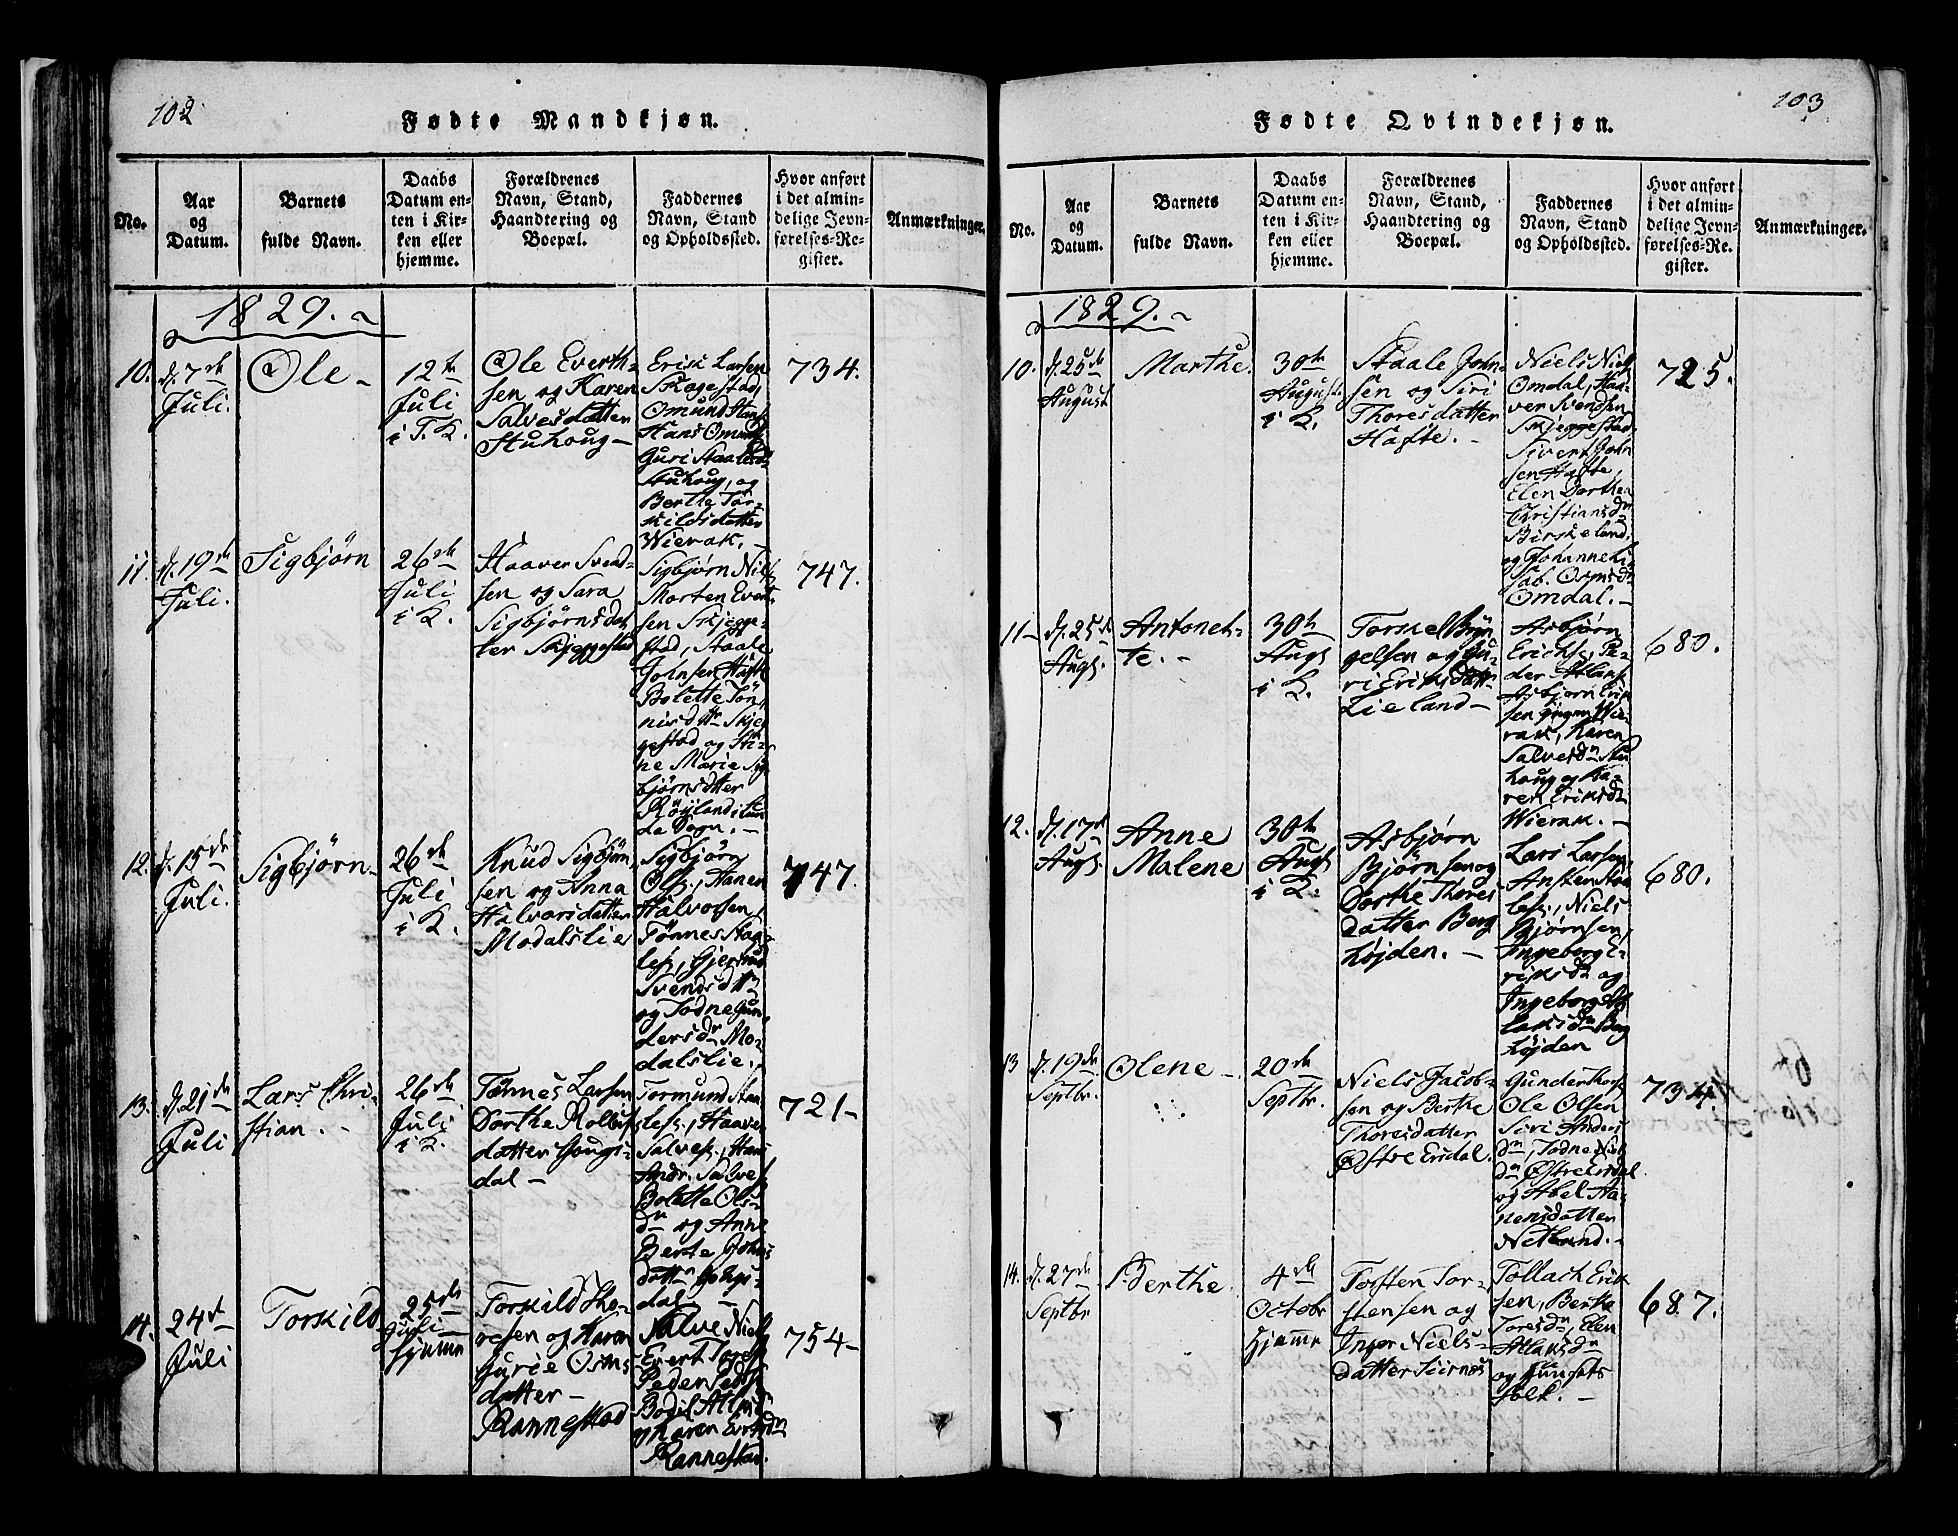 102
Fødte Mandkjøn.
No.
Aar
og
Datum.
Barnets
fulde Navn.
Daabs
Datum en-
ten i Kir-
ken eller
hjemme.
Forældrenes
Navn, Stand,
Haandtering og
Boepæl.
Faddernes
Navn, Stand
og Opholdssted.
Hvor anført
i det almin-
delige Jevn-
førelses-Re-
gister.
Anmærkninger.
1829.
10.
d. 7de
Juli.
Ole
12te
Juli
i T. K.
Ole Everth-
sen og Karen
Salvesdatter
Stuhoug
Erik Larsen
Skagestad,
Omund
Hans
Guri Staalesd.
Stuhoug, og
Berthe Tor-
kildsdatter
Wierak.
734.
11.
d. 19de
Juli.
Sigbjørn
26de
Juli
i K.
Haaver Svend-
sen og Sara
Sigbjørnsdat
ter Skjeggestad
Sigbjørn Niels
Morten Evert-
sen Skjegge-
stad, Staale
Johnsen Hafte
Bolette Tøn-
nisdttr Skjeg
gestad og Sti-
ne Marie Sig
bjørnsdatter
Røyland i Lun
de Sogn.
747.
12.
d. 15de
Juli.
Sigbjørn
26de
Juli
i K.
Knud Sigbjørn
sen og Anna
Halvorsdatter
Modalslie
Sigbjørn
Ols., Aanen
Halvorsen
Tønnes Staa-
les., Gjertrud
Svendsdttr
og Todne Gun
dersdr Mo-
dalslie.
747.
13.
d. 21de
Juli
Lars Chri-
stian.
26de
Juli
i K.
Tønnes Larsen
Dorthe Rolufs
datter Hougs-
dal
Tormund Staa
les., Haaver
Salves., Hans
Andr. Salves
Bolette Ols-
dr og Anne
Berte Johns
dattr Hougs-
dal
721
14.
24de
Juli
Torkild
25de
Juli
hjemme
Torkild Tho-
resen og Karen
Gurie Osms
datter
Rannestad
Salve Niels
Evert Tores
Peder Peders
Bodil
og Karen Evertsdr
Rannestad.
754
103
Fødte Qvindekjøn.
No.
Aar
og
Datum.
Barnets
fulde Navn.
Daabs
Datum en-
ten i Kir-
ken eller
hjemme.
Forældrenes
Navn, Stand,
Haandtering og
Boepæl.
Faddernes
Navn, Stand
og Opholdssted.
Hvor anført
i det almin-
delige Jevn-
førelses-Re-
gister.
Anmærkninger.
1829.
10.
d. 25de
August
Marthe.
30te
August
i K.
Staale John-
sen og Siri
Thoresdatter
Hafte.
Niels Niels
Omdal, Haa-
ver Svendsen
Skjeggestad
Sivert John
sen Hafte,
Elen Dorthea
Christiansdr
Birkeland,
og Johanne Li
sab. Osmsdr
Omdal.
725.
11
d. 25de
Augs.
Antonet-
te.
30te
Augs
i K.
Torkel Bryn
gelsen og Gu-
ri Eriksdattr
Lieland
Asbjørn
Erichs., Pe-
der Atlaks
Asbjørn Erik
sen Wie-
rak, Karen
Salvesdr Stu
houg og Ka-
ren Eriksdr
Wierak.
680.
12.
d. 17de
Augs.
Anne
Malene
30te
Augs
i K.
Asbjørn
Bjørnsen og
Dorthe Thores
datter Berg
højden.
Lars Larsen
Ansten Staa
les., Niels
Bjørnsen,
Ingeborg E-
riksdr og
Ingeborg
laksdr Berg
højden
680.
13
d. 19de
Septbr.
Olene
20de
Septbr.
Niels Jacob-
sen og Berthe
Thoresdatter
Østre Ersdal.
Gunder Thors
Ole Olsen
Siri Anders
dr, Todne Niels
dr Østre Ersdal
og Abel Aa-
nensdatter
Netland.
734
14.
d. 27de
Septbr
Berthe
4de
Octobr
hjemme
Torsten Tor-
stensen og
Inger Niels-
datter Seirnes
Tollach Erik
sen, Bertha
Toresdr, Elen
Atlaksdr
og Huusets
folk.
687.